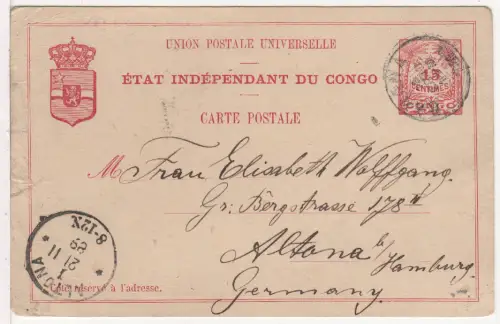 UNION POSTALE UNIVERSELLE
ÉTAT INDÉPENDANT DU CONGO
CARTE POSTALE
15
CENTIMES
M Frau Elisabeth Wolffgang.
Gr: Bergstrasse 178
Altona b/Hamburg.
Germany
Côté réservé à l'adresse.